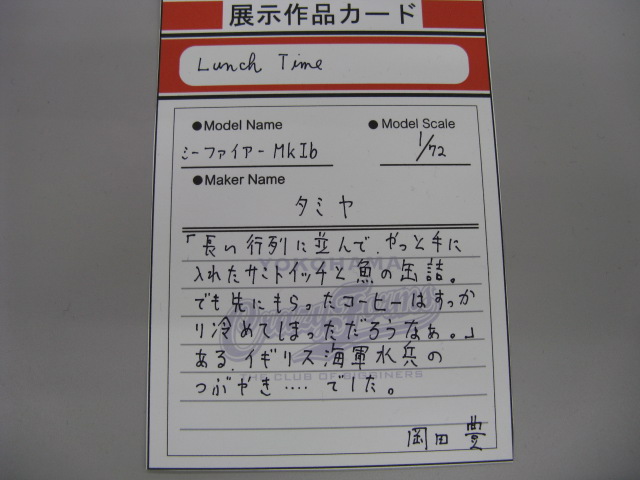 展示作品カード
Lunch Time
●Model Name
●Model Scale
シーファイアー MkIb
1/72
●Maker Name
タミヤ
「長い行列に並んで、やっと手に
入れたサンドイッチと魚の缶詰。
でも先にもらったコーヒーはすっか
り冷めてしまっただろうなぁ。」
ある、イギリス海軍水兵の
つぶやき‥‥でした。
YOKOHAMA
THE CLUB OF BEGINNERS
岡田 豊